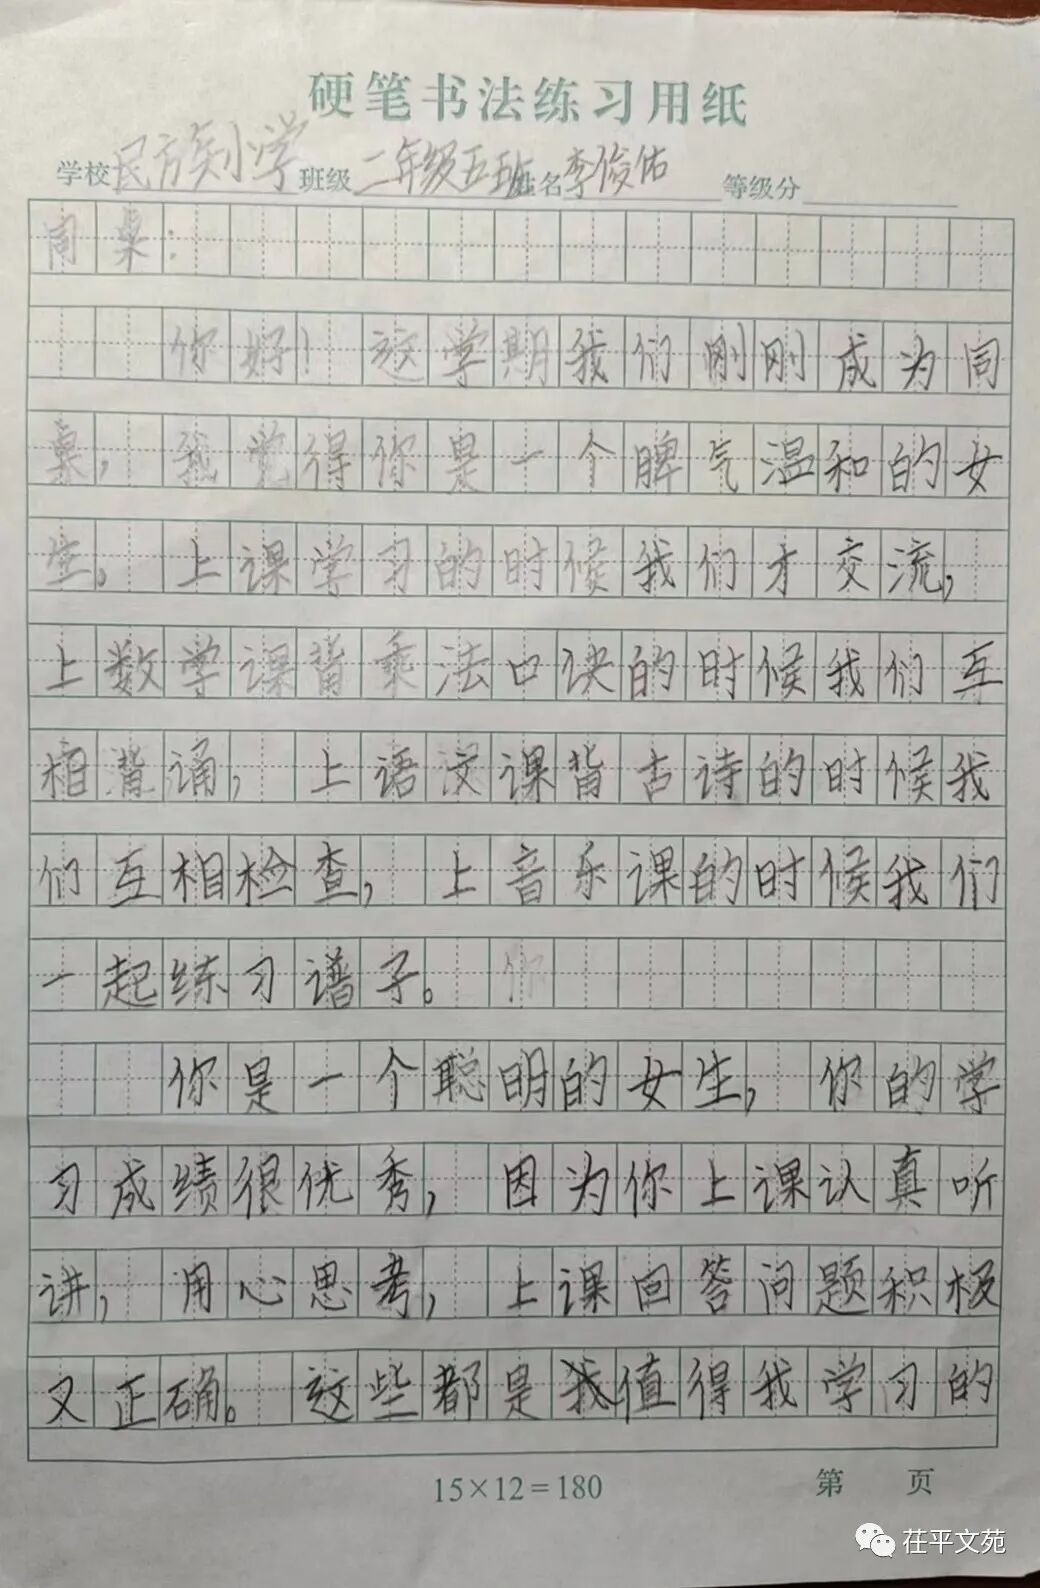 硬笔书法练习用纸
学校 民族小学 班级 二年级五班 姓名 李俊佑 等级分
同桌：
你好！这学期我们刚刚成为同
桌，我觉得你是一个脾气温和的女
生。上课学习的时候我们才交流，
上数学课背乘法口诀的时候我们互
相背诵，上语文课背古诗的时候我
们互相检查，上音乐课的时候我们
一起练习谱子。
你是一个聪明的女生，你的学
习成绩很优秀，因为你上课认真听
讲，用心思考，上课回答问题积极
又正确。这些都是我值得我学习的
15×12=180
第 页
茌平文苑